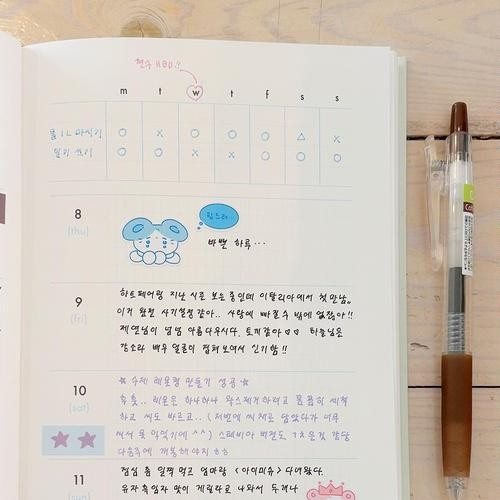 현수 HBD!!
m t w t f s s
물 1L 마시기 O X O O O △ X
일기 쓰기 O O X X O O O
8
(thu)
힘드러..
바쁠 하루...
9
(fri)
하트페어링 지난 시즌 보는 중인데 이탈리아에서 첫 만남..
이거 완전 사기설정 같아.. 사랑에 빠질 수 밖에 없잖아!!
제연님이 넘넘 아름다우시다. 토끼같아 ♡♡
감소라 배우 얼굴이 겹쳐 보여서 신기함!!
10
(sat)
☆ 수제 레몬청 만들기 성공 ☆
후훗.. 레몬은 하나하나 왁스제거하려고 꼼꼼히 세척
하고 씨도 바르고.. (저번에 씨채로 담았다가 너무
써서 못 먹었기에 ^^) 스테비아 버전도
다음주에 개봉해야지 ㅎㅎ
11
(sun)
점심 좀 일찍 먹고 엄마랑 <아이미유> 다녀왔다.
유자 흑임자 맛이 게릴라로 나와서 두개나